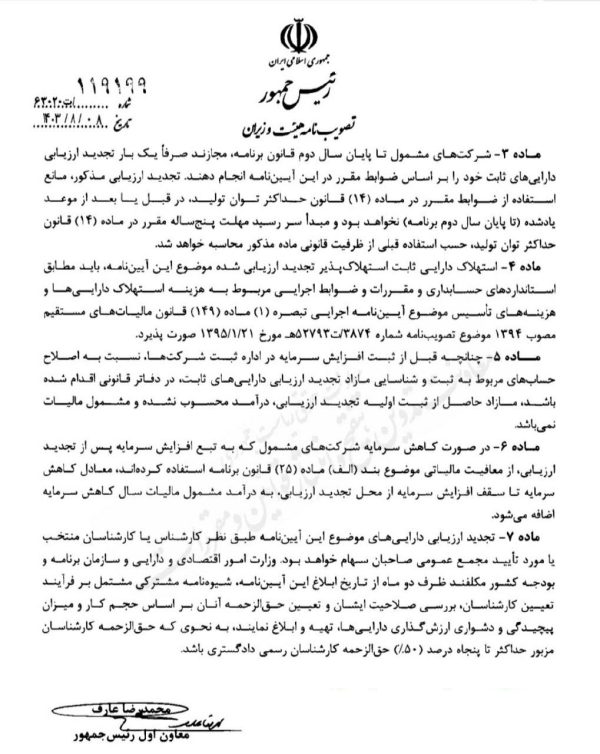 جمهوری اسلامی ایران
رئیس جمهور
تصویب‌نامه هیئت وزیران
۱۱۹۱۹۹
شماره ........../ت۶۳۰۲۰هـ
تاریخ ۱۴۰۳/۸/۰۸
ماده ۳- شرکت‌های مشمول تا پایان سال دوم قانون برنامه، مجازند صرفاً یک بار تجدید ارزیابی
دارایی‌های ثابت خود را بر اساس ضوابط مقرر در این آیین‌نامه انجام دهند. تجدید ارزیابی مذکور، مانع
استفاده از ضوابط مقرر در ماده (۱۴) قانون حداکثر توان تولید، در قبل یا بعد از موعد
یادشده (تا پایان سال دوم برنامه) نخواهد بود و مبدأ سر رسید مهلت پنج‌ساله مقرر در ماده (۱۴) قانون
حداکثر توان تولید، حسب استفاده قبلی از ظرفیت قانونی ماده مذکور محاسبه خواهد شد.
ماده ۴- استهلاک دارایی ثابت استهلاک‌پذیر تجدید ارزیابی شده موضوع این آیین‌نامه، باید مطابق
استانداردهای حسابداری و مقررات و ضوابط اجرایی مربوط به هزینه استهلاک دارایی‌ها و
هزینه‌های تأسیس موضوع آیین‌نامه اجرایی تبصره (۱) ماده (۱۴۹) قانون مالیات‌های مستقیم
مصوب ۱۳۹۴ موضوع تصویب‌نامه شماره ۳۸۷۴/ت۵۲۷۹۳هـ مورخ ۱۳۹۵/۱/۲۱ صورت پذیرد.
ماده ۵- چنانچه قبل از ثبت افزایش سرمایه در اداره ثبت شرکت‌ها، نسبت به اصلاح
حساب‌های مربوط به ثبت و شناسایی مازاد تجدید ارزیابی دارایی‌های ثابت، در دفاتر قانونی اقدام شده
باشد، مازاد حاصل از ثبت اولیه تجدید ارزیابی، درآمد محسوب نشده و مشمول مالیات
نمی‌باشد.
ماده ۶- در صورت کاهش سرمایه شرکت‌های مشمول که به تبع افزایش سرمایه پس از تجدید
ارزیابی، از معافیت مالیاتی موضوع بند (الف) ماده (۲۵) قانون برنامه استفاده کرده‌اند، معادل کاهش
سرمایه تا سقف افزایش سرمایه از محل تجدید ارزیابی، به درآمد مشمول مالیات سال کاهش سرمایه
اضافه می‌شود.
ماده ۷- تجدید ارزیابی دارایی‌های موضوع این آیین‌نامه طبق نظر کارشناس یا کارشناسان منتخب
یا مورد تأیید مجمع عمومی صاحبان سهام خواهد بود. وزارت امور اقتصادی و دارایی و سازمان برنامه و
بودجه کشور مکلفند ظرف دو ماه از تاریخ ابلاغ این آیین‌نامه، شیوه‌نامه مشترکی مشتمل بر فرآیند
تعیین کارشناسان، بررسی صلاحیت ایشان و تعیین حق‌الزحمه آنان بر اساس حجم کار و میزان
پیچیدگی و دشواری ارزش‌گذاری دارایی‌ها، تهیه و ابلاغ نمایند، به نحوی که حق‌الزحمه کارشناسان
مزبور حداکثر تا پنجاه درصد (۵۰٪) حق‌الزحمه کارشناسان رسمی دادگستری باشد.
محمدرضا عارف
معاون اول رئیس‌جمهور